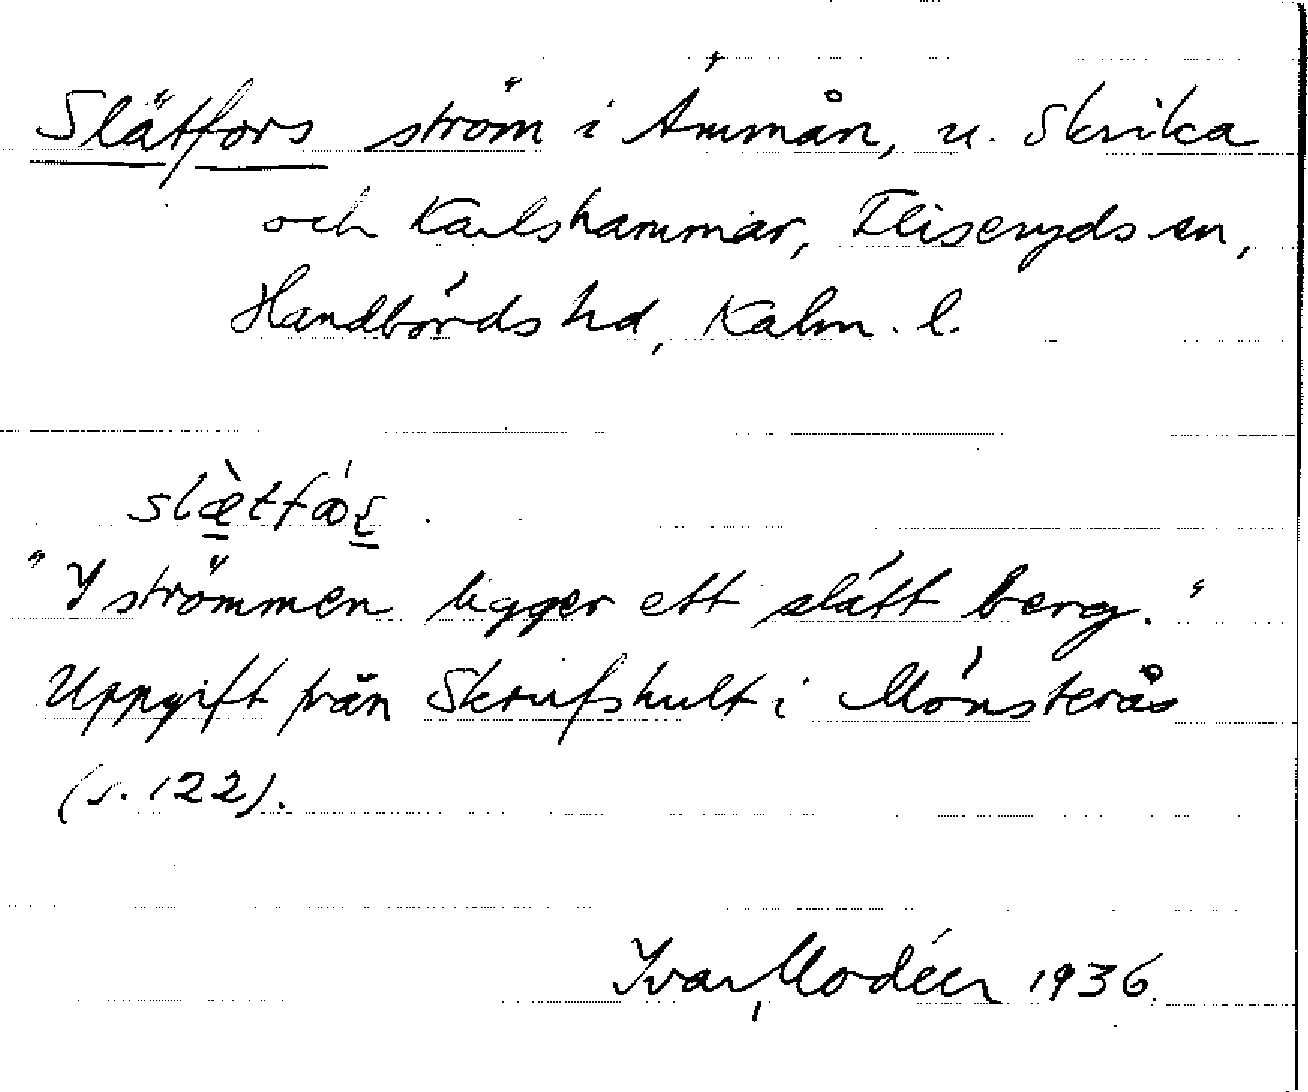 Slätfors ström i Ämmån, u. Skrika
och Karlshammar, Fliseryds sn,
Handbörds hd, Kalm. l.
slæ̀tfǿ
"I strömmen ligger ett slätt berg."
Uppgift från Skrufshult i Mönsterås
(s. 122).
Ivar Modéer 1936.